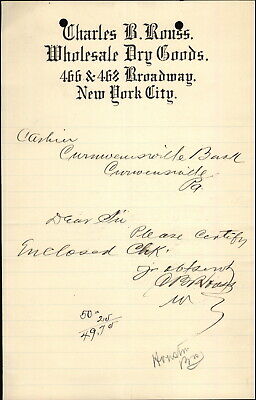 Charles B. Rouss.
Wholesale Dry Goods.
466 & 468 Broadway.
New York City.
Cashier
Curwensville Bank
Curwensville
Pa
Dear Sir
Please Certify
Enclosed Chk.
Yr obt servt
C B Rouss
50
25
49.75